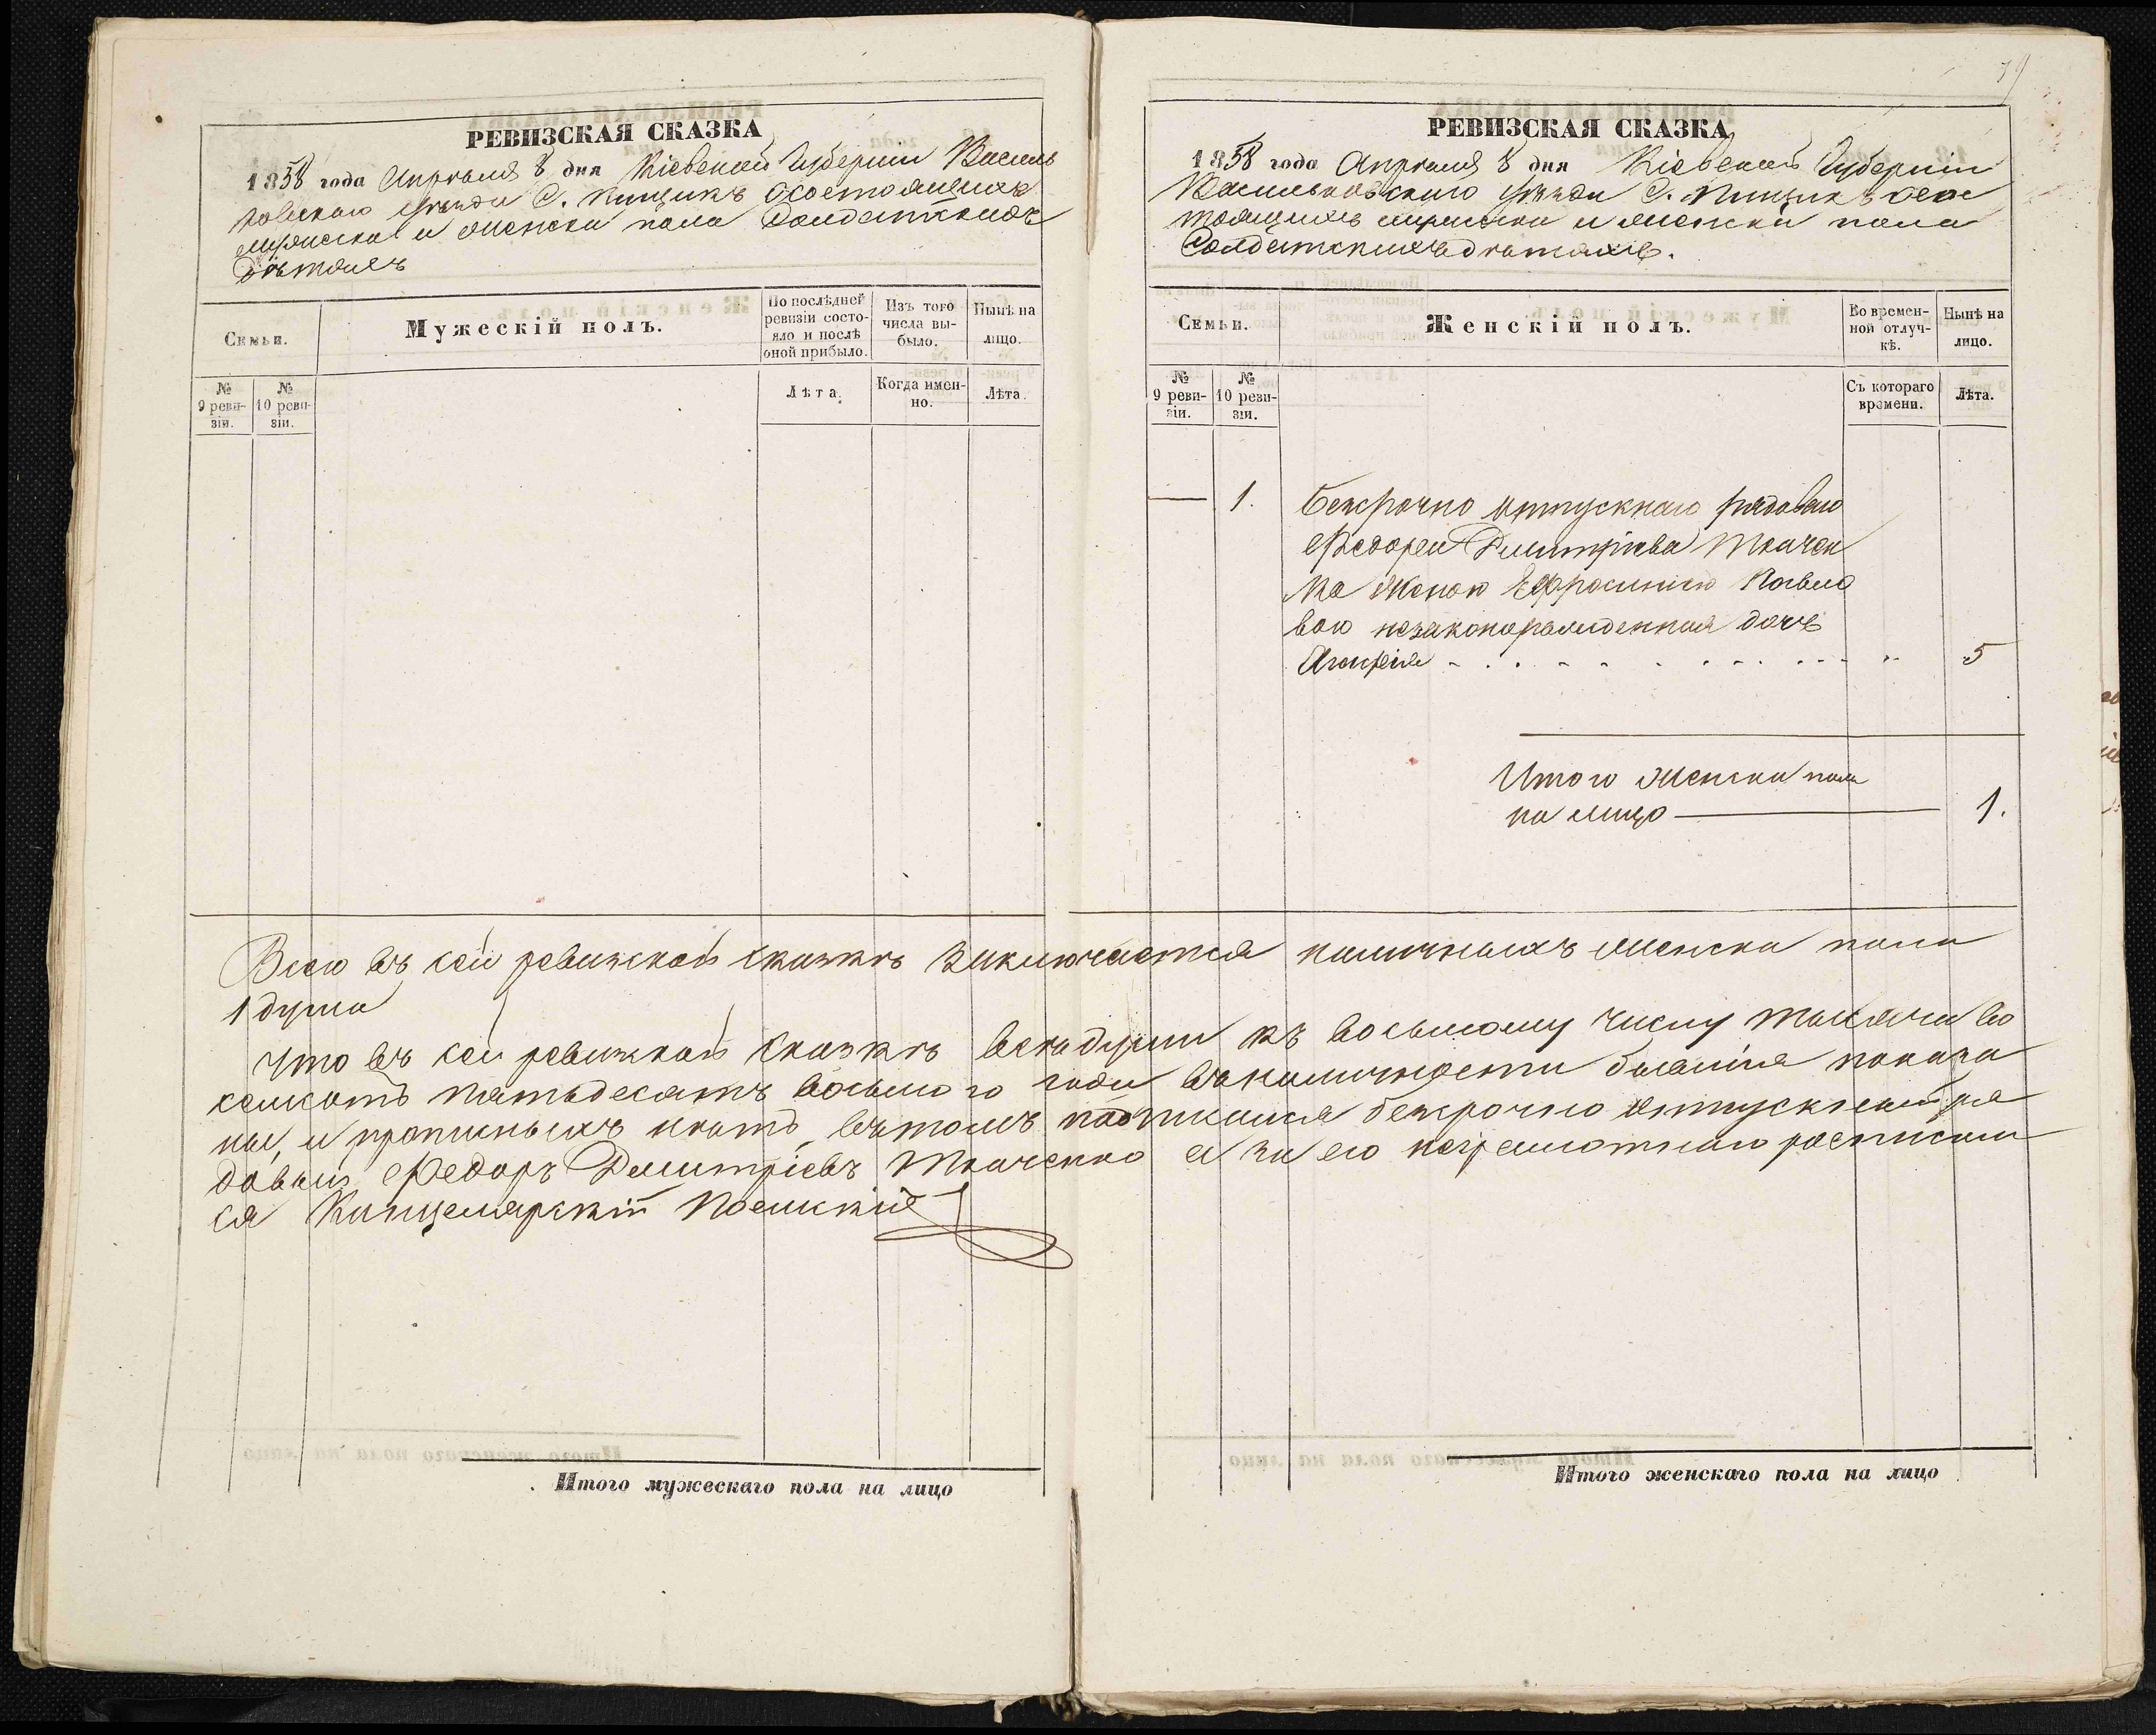 РЕВИЗСКАЯ СКАЗКА
1858 года Апрѣля 8 дня Кіевской Губерніи Василь
ковскаго уѣзда С. о состоящихъ
мужеска и женска пола Солдатскихъ
дѣтяхъ
Семьи.
Мужескій полъ.
По послѣдней
ревизіи состо-
яло и послѣ
оной прибыло.
Изъ того
числа вы-
было.
Нынѣ на
лицо.
№
9 реви-
зіи.
№
10 реви-
зіи.
Лѣта.
Когда имен-
но.
Лѣта.
79
РЕВИЗСКАЯ СКАЗКА
1858 года Апрѣля 8 дня Кіевской Губерніи
Васильковскаго уѣзда С. о сос
тоящихъ мужеска и женска пола
Солдатскихъ дѣтяхъ.
Семьи.
Женскій полъ.
Во времен-
ной отлуч-
кѣ.
Нынѣ на
лицо.
№
9 реви-
зіи.
№
10 реви-
зіи.
Съ котораго
времени.
Лѣта.
— 1. безсрочно отпускнаго рядоваго
Федора Димитріева Ткачен
ка женою Ефросиніею Павло
вою незаконорожденная дочь
5
Итого женска пола
на лицо — 1.
Всего въ сей ревизской сказкѣ заключается наличныхъ женска пола
1 душа
Что въ сей ревизской сказкѣ всѣ души къ восьмому числу тысяча во
семсотъ пятьдесятъ восьмого года въ наличности бывшія показа
ны, и прописныхъ нѣтъ, въ томъ подписался безсрочно отпускной ря
довый Федоръ Димитріевъ Ткаченко а за его неграмотнаго росписал
ся Канцелярскій
Итого мужескаго пола на лицо
Итого женскаго пола на лицо